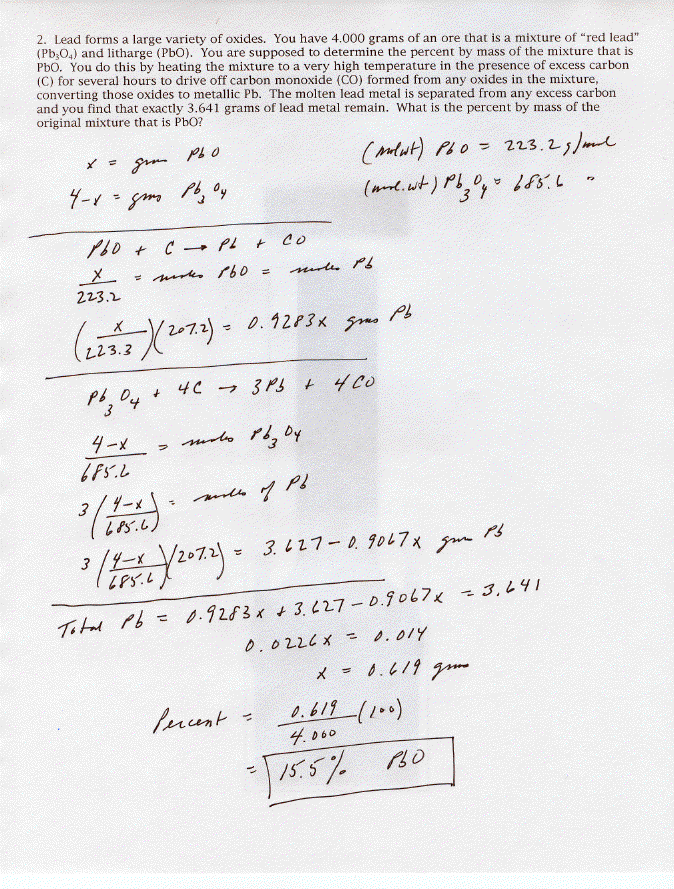 2. Lead forms a large variety of oxides. You have 4.000 grams of an ore that is a mixture of "red lead"
(Pb₃O₄) and litharge (PbO). You are supposed to determine the percent by mass of the mixture that is
PbO. You do this by heating the mixture to a very high temperature in the presence of excess carbon
(C) for several hours to drive off carbon monoxide (CO) formed from any oxides in the mixture,
converting those oxides to metallic Pb. The molten lead metal is separated from any excess carbon
and you find that exactly 3.641 grams of lead metal remain. What is the percent by mass of the
original mixture that is PbO?
x = gm PbO
(mol wt) PbO = 223.2 g/mol
4-x = gms Pb₃O₄
(mol. wt) Pb₃O₄ = 685.6 "
PbO + C → Pb + CO
x/223.2 = moles PbO = moles Pb
(x/223.3)(207.2) = 0.9283x gms Pb
Pb₃O₄ + 4C → 3Pb + 4CO
4-x/685.6 = moles Pb₃O₄
3(4-x/685.6) = moles of Pb
3(4-x/685.6)(207.2) = 3.627 - 0.9067x gm Pb
Total Pb = 0.9283x + 3.627 - 0.9067x = 3.641
0.0226x = 0.014
x = 0.619 gms
Percent = 0.619/4.000 (100)
= 15.5% PbO